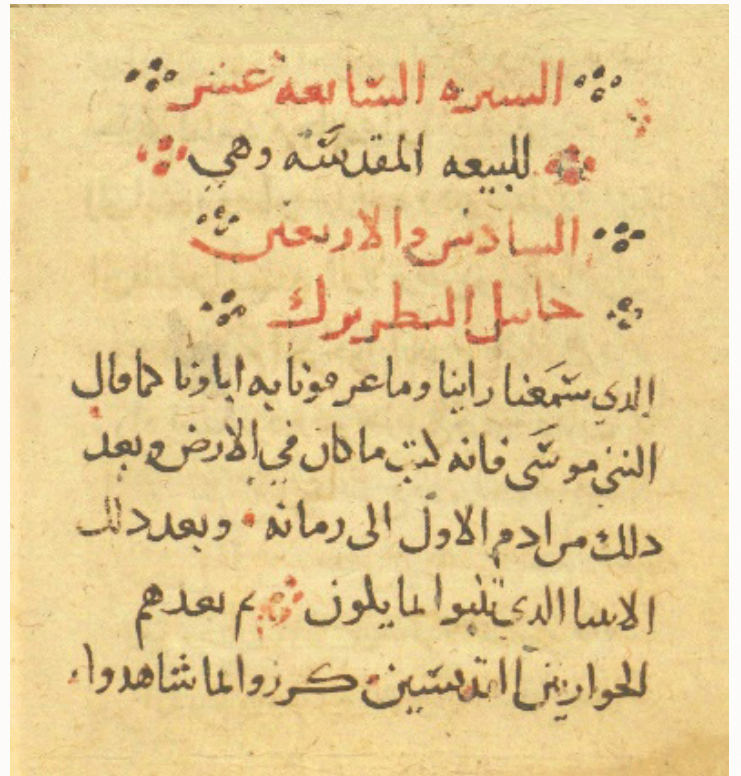 السيره السابعه عشر
للبيعه المقدسه وهي
السادس والاربعين
خاييل البطريرك
الدي سمعنا راينا وما عرفونا به اباونا كما قال
النبي موسى فانه كتب ما كان في الارض وبعد
دلك من ادم الاول الى زمانه وبعد دلك
الانبيا الدي تنبوا لما يكون ثم بعدهم
الحواريين القديسين كرزوا لما شاهدوا